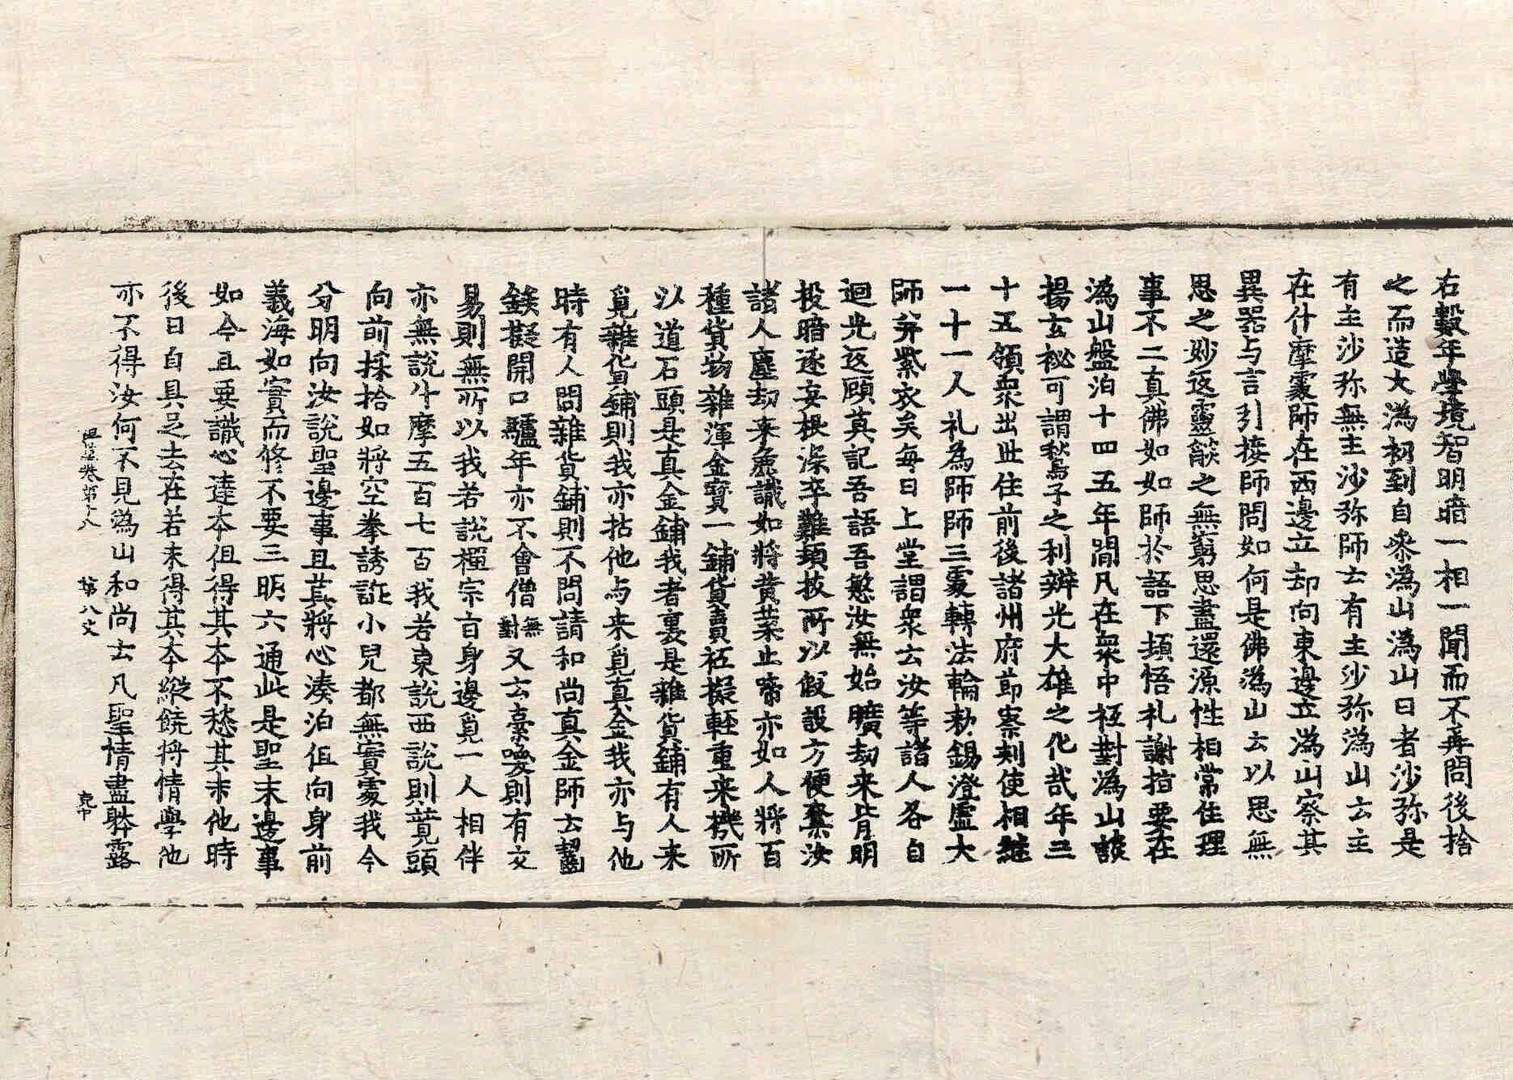 右數年學境智明暗一相一聞而不再問後捨
之而造大溈初到自叅溈山溈山曰者沙弥是
有主沙弥無主沙弥師云有主沙弥溈山云主
在什摩處師在西邊立却向東邊立溈山察其
異器与言引接師問如何是佛溈山云以思無
思之妙返靈燄之無窮思盡還源性相常住理
事不二真佛如如師於語下頓悟礼謝指要在
溈山盤泊十四五年間凡在衆中祗對溈山談
揚玄秘可謂鶖子之利辯光大雄之化哉年三
十五領衆出世住前後諸州府節察刾使相継
一十一人礼為師師三處轉法輪勑錫澄虛大
師并紫衣矣每日上堂謂衆云汝等諸人各自
迴光返顧莫記吾語吾慜汝無始曠劫来背明
投暗逐妄根深卒難頓拔所以假設方便奪汝
諸人塵劫来麁識如將黄葉止啼亦如人將百
種貨物雜渾金寶一鋪貨賣祗擬輊重来機所
以道石頭是真金鋪我者裏是雜貨鋪有人来
覓雜貨鋪則我亦拈他与来覓真金我亦与他
時有人問雜貨鋪則不問請和尚真金師云齧
鏃擬開口驢年亦不會僧無對又云索喚則有交
易則無所以我若說禪宗百身邊覓一人相伴
亦無說什摩五百七百我若東說西說則競頭
向前採拾如將空拳誘誑小兒都無實處我今
分明向汝說聖邊事且莫將心湊泊但向身前
義海如實而修不要三明六通此是聖末邊事
如今且要識心達本但得其本不愁其末他時
後日自具足去在若未得其本縱饒將情學他
亦不得汝何不見溈山和尚云凡聖情盡體露
祖堂卷第十八 第八丈